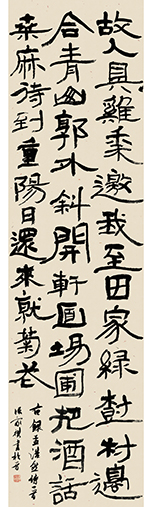 故人具雞黍邀我至田家綠樹村邊
合青山郭外斜開軒面場圃把酒話
桒麻待到重陽日還來就菊花
右錄孟浩然詩一首